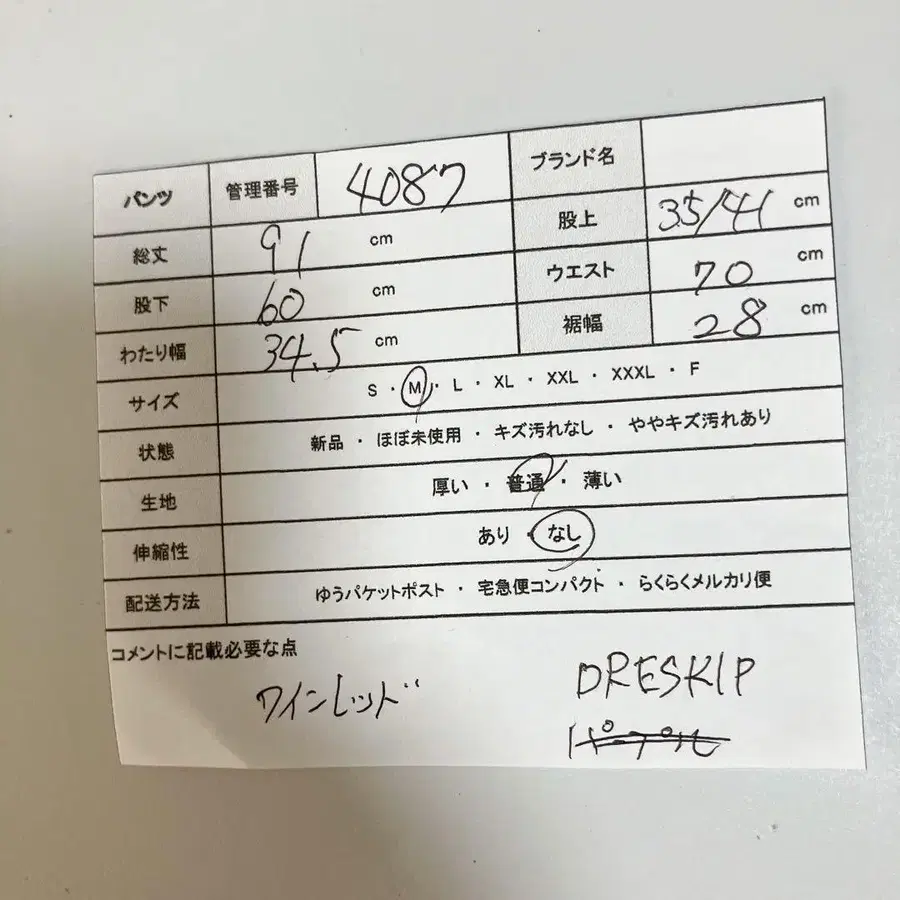 パンツ 管理番号 4087 ブランド名
総丈 91 cm 股上 35/41 cm
股下 60 cm ウエスト 70 cm
わたり幅 34.5 cm 裾幅 28 cm
サイズ S ・ M ・ L ・ XL ・ XXL ・ XXXL ・ F
状態 新品 ・ ほぼ未使用 ・ キズ汚れなし ・ ややキズ汚れあり
生地 厚い ・ 普通 ・ 薄い
伸縮性 あり ・ なし
配送方法 ゆうパケットポスト ・ 宅急便コンパクト ・ らくらくメルカリ便
コメントに記載必要な点
ワインレッド DRESKIP
パープル